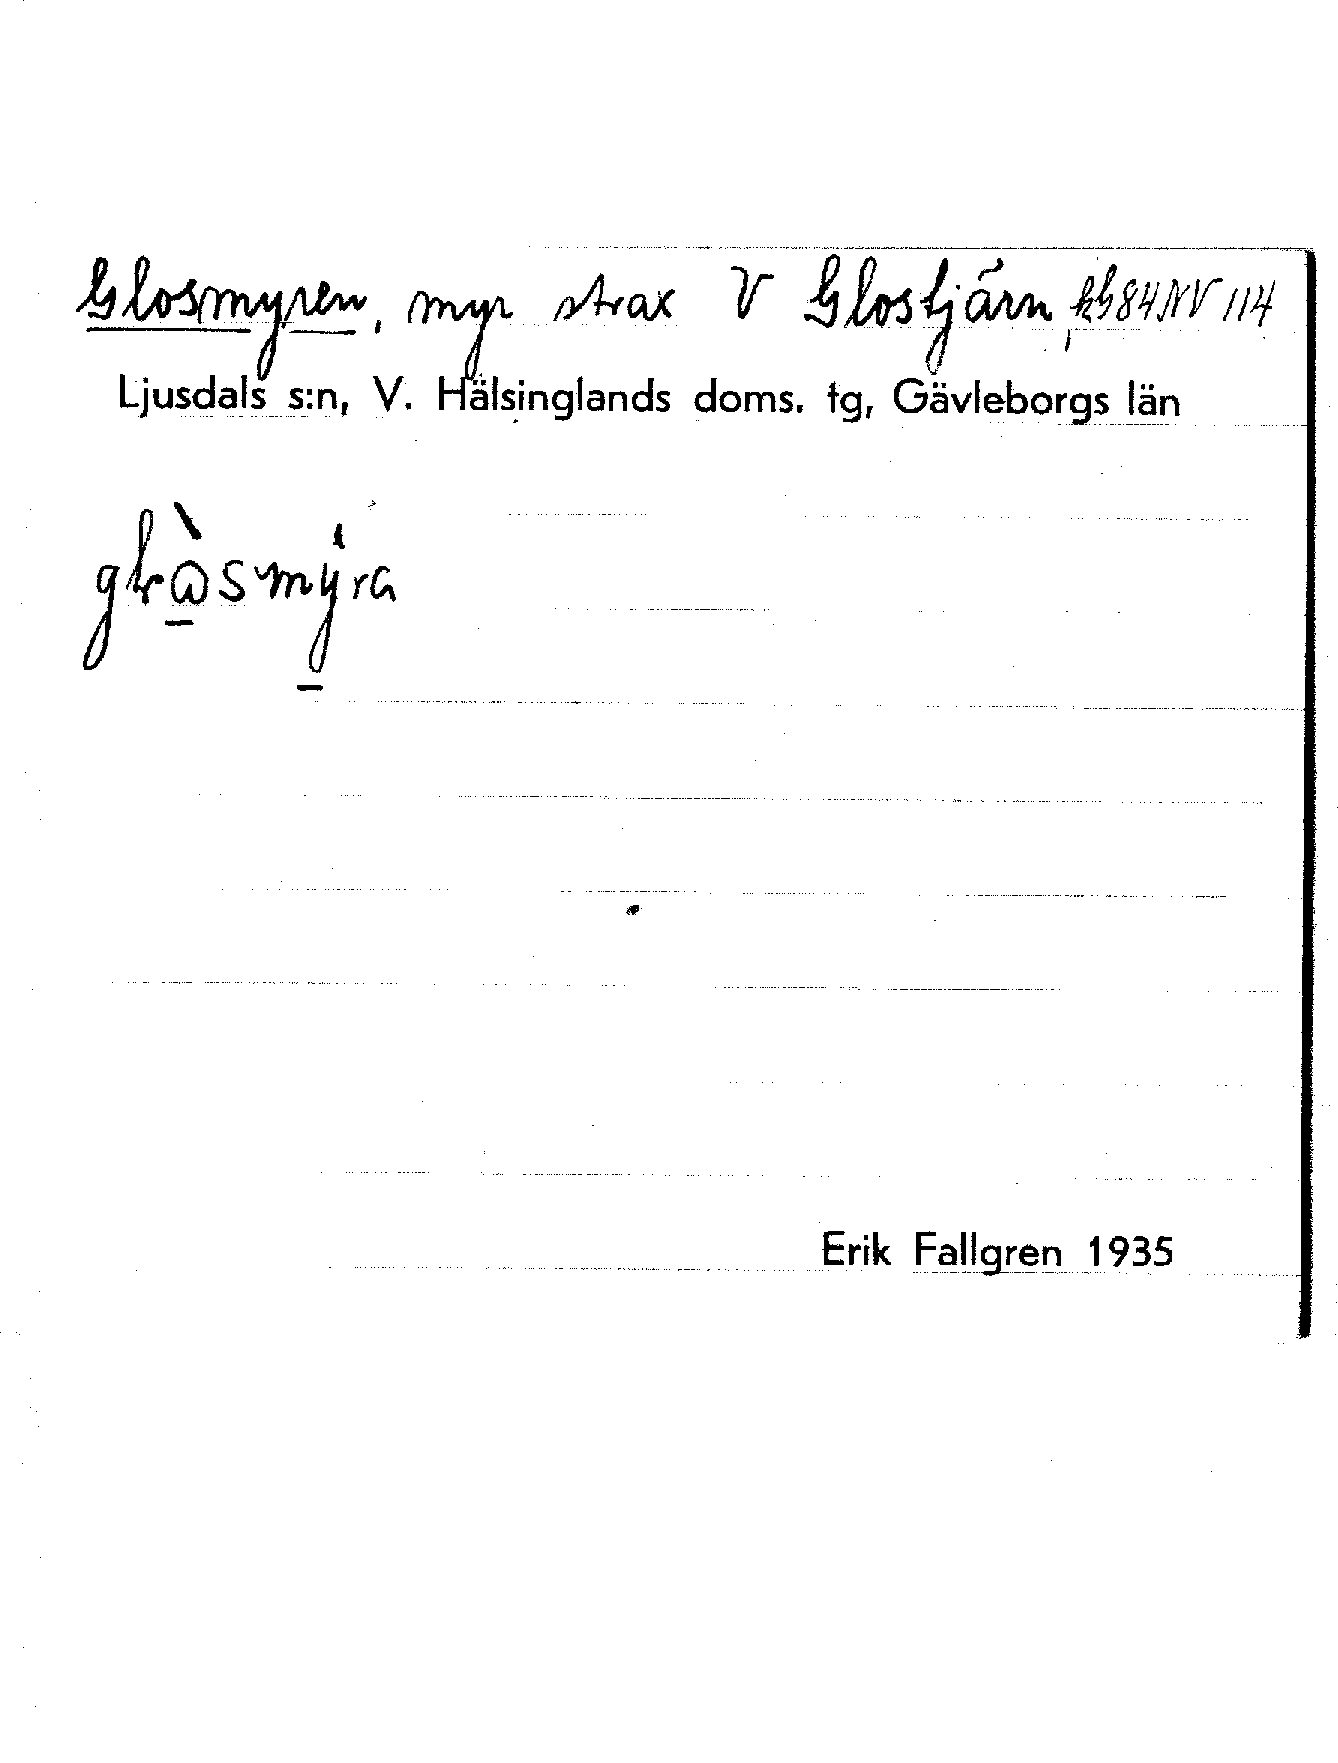 Glosmyren, myr strax V Glostjärn, kb 84 NV 114
Ljusdals s:n, V. Hälsinglands doms. tg, Gävleborgs län
Erik Fallgren 1935